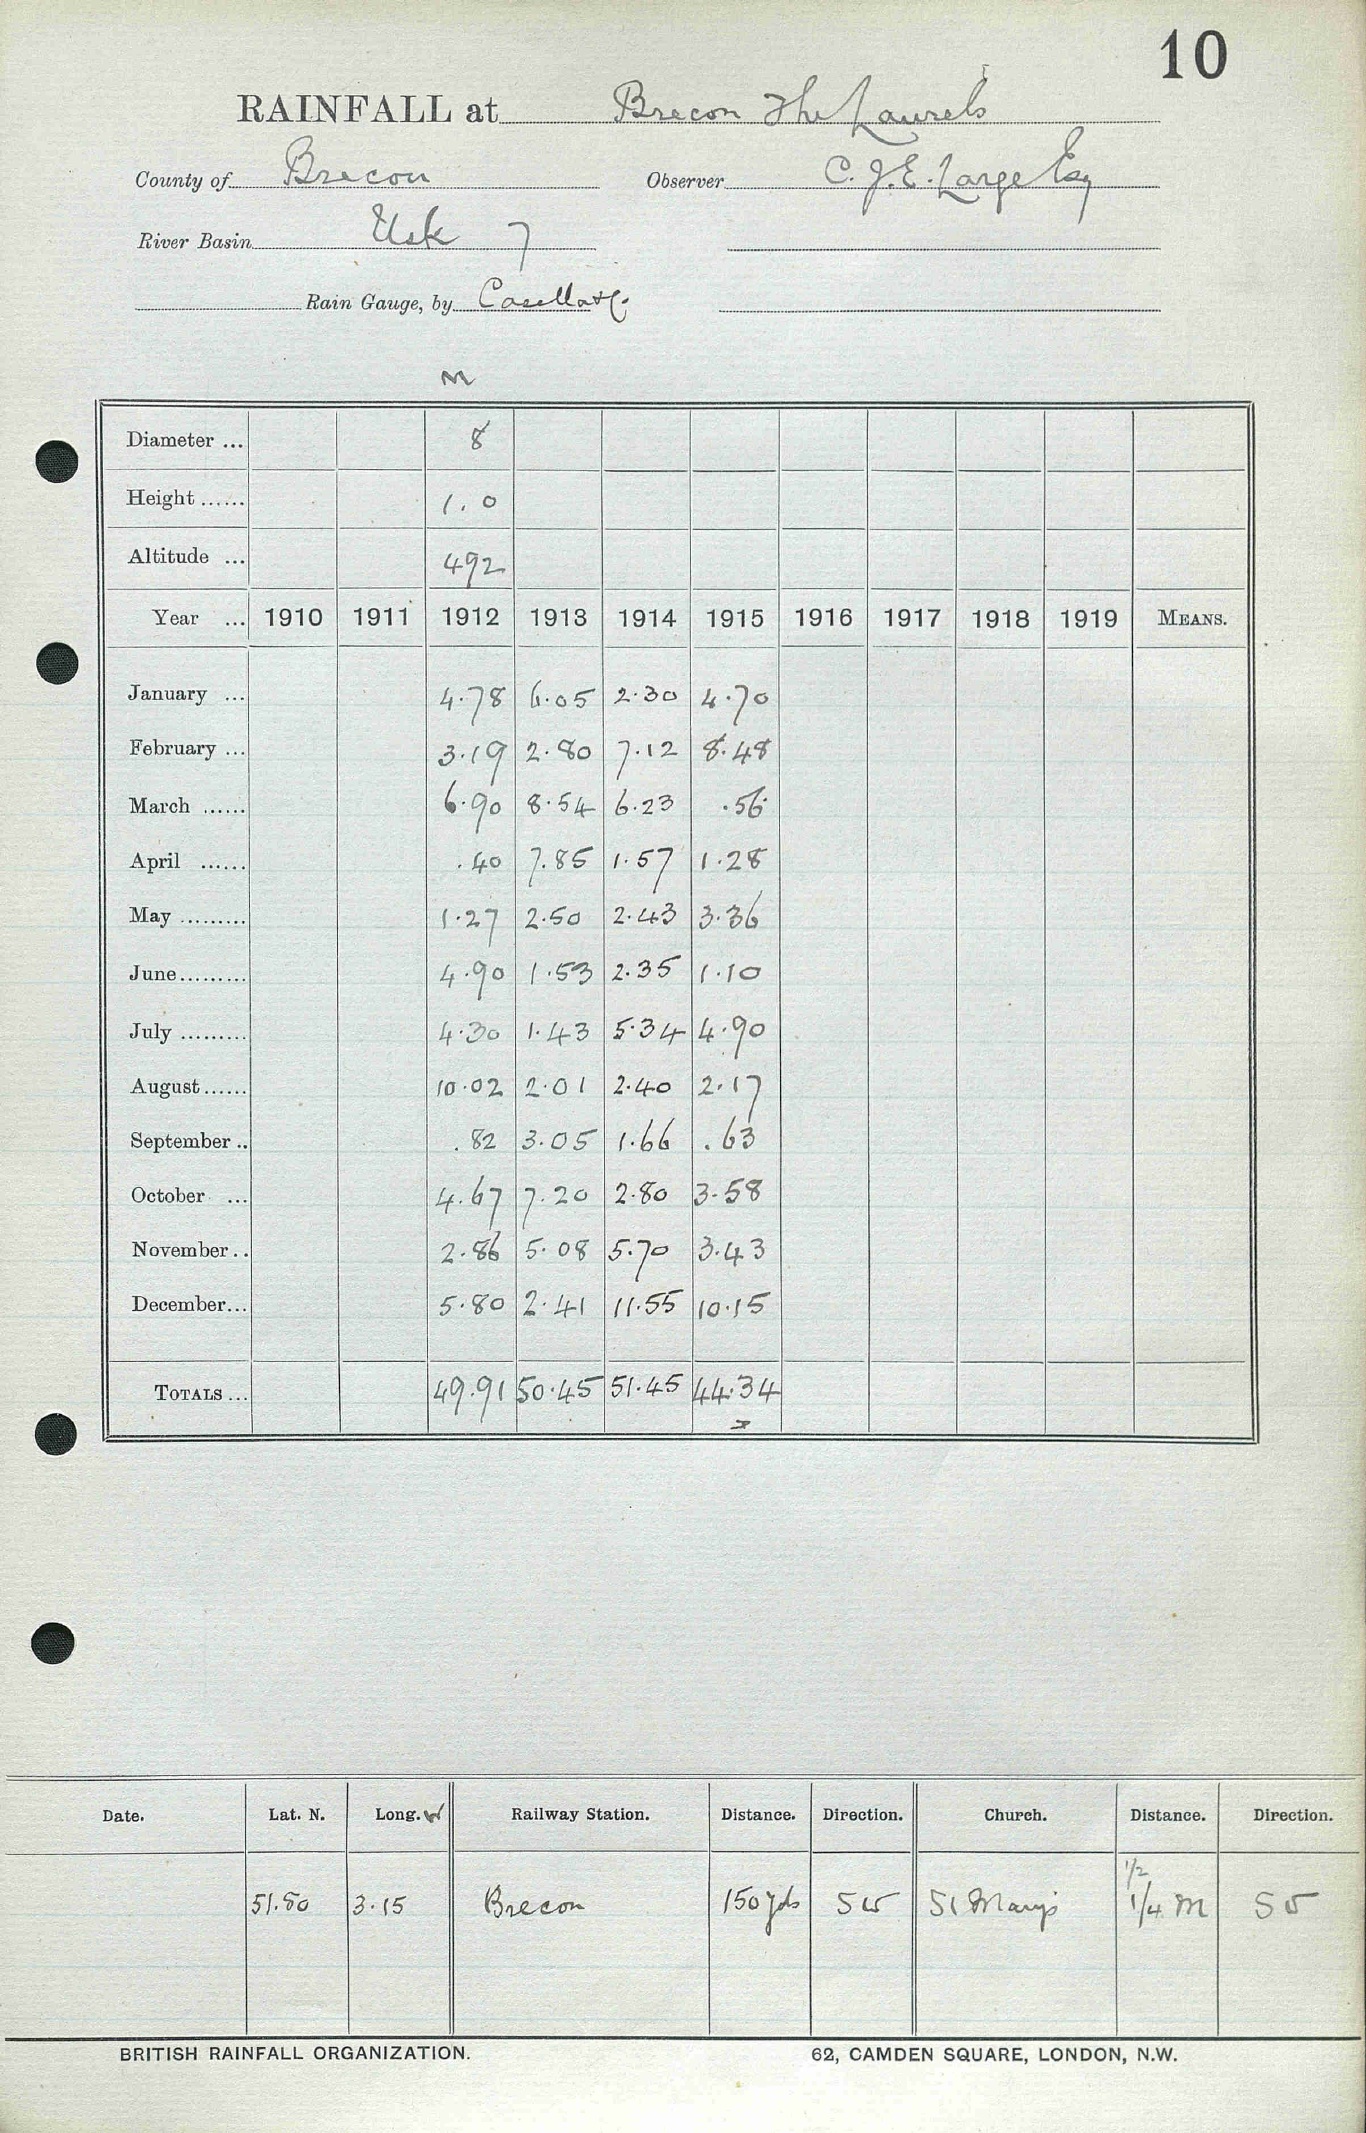 10
RAINFALL at Brecon The Laurels
County of Brecon Observer C. J. E. Large Esq
River Basin Usk 7
Rain Gauge, by Casella
M
Diameter ... 8
Height ...... 1.0
Altitude ... 492
Year ... 1910 1911 1912 1913 1914 1915 1916 1917 1918 1919 MEANS.
January ... 4.78 6.05 2.30 4.70
February ... 3.19 2.80 7.12 8.48
March ...... 6.90 8.54 6.23 .56
April ...... .40 7.85 1.57 1.28
May ......... 1.27 2.50 2.43 3.36
June......... 4.90 1.53 2.35 1.10
July ......... 4.30 1.43 5.34 4.90
August...... 10.02 2.01 2.40 2.17
September .. .82 3.05 1.66 .63
October ... 4.67 7.20 2.80 3.58
November.. 2.86 5.08 5.70 3.43
December... 5.80 2.41 11.55 10.15
TOTALS ... 49.91 50.45 51.45 44.34
Date. Lat. N. Long. W Railway Station. Distance. Direction. Church. Distance. Direction.
1/2
51.50 3.15 Brecon 150 yds SW St Mary's 1/4 M SW
BRITISH RAINFALL ORGANIZATION. 62, CAMDEN SQUARE, LONDON, N.W.